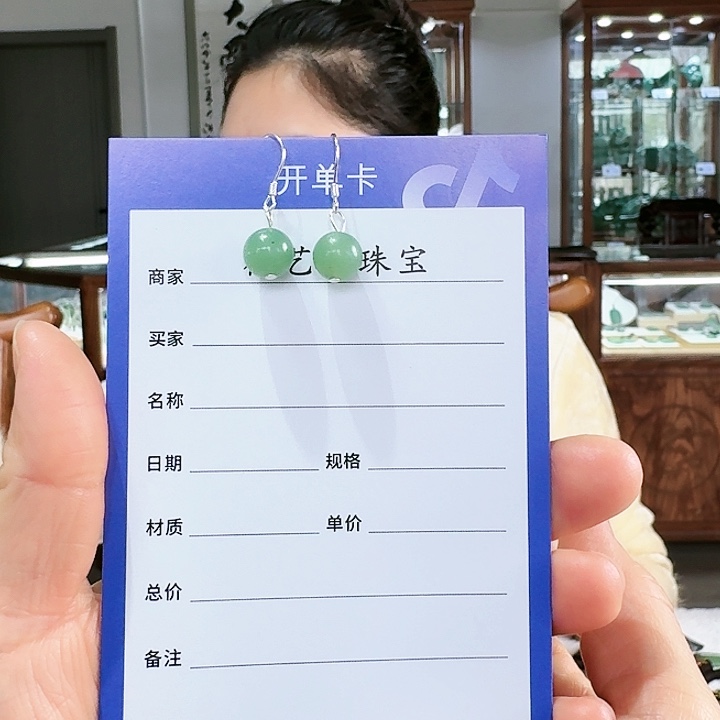 开单卡
商家 艺 珠宝
买家
名称
日期 规格
材质 单价
总价
备注